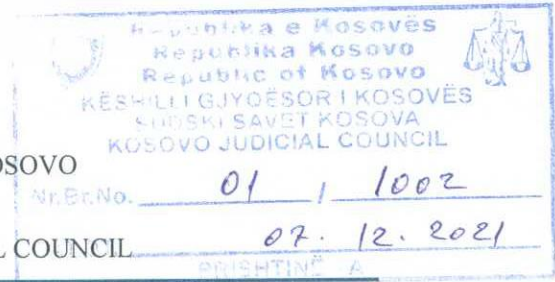 Republika e Kosovës
Republika Kosovo
Republic of Kosovo
KËSHILLI GJYQËSOR I KOSOVËS
SUDSKI SAVET KOSOVA
KOSOVO JUDICIAL COUNCIL
OSOVO
Nr.Br.No. 01 / 1002
L COUNCIL 07. 12. 2021
PRISHTINË A